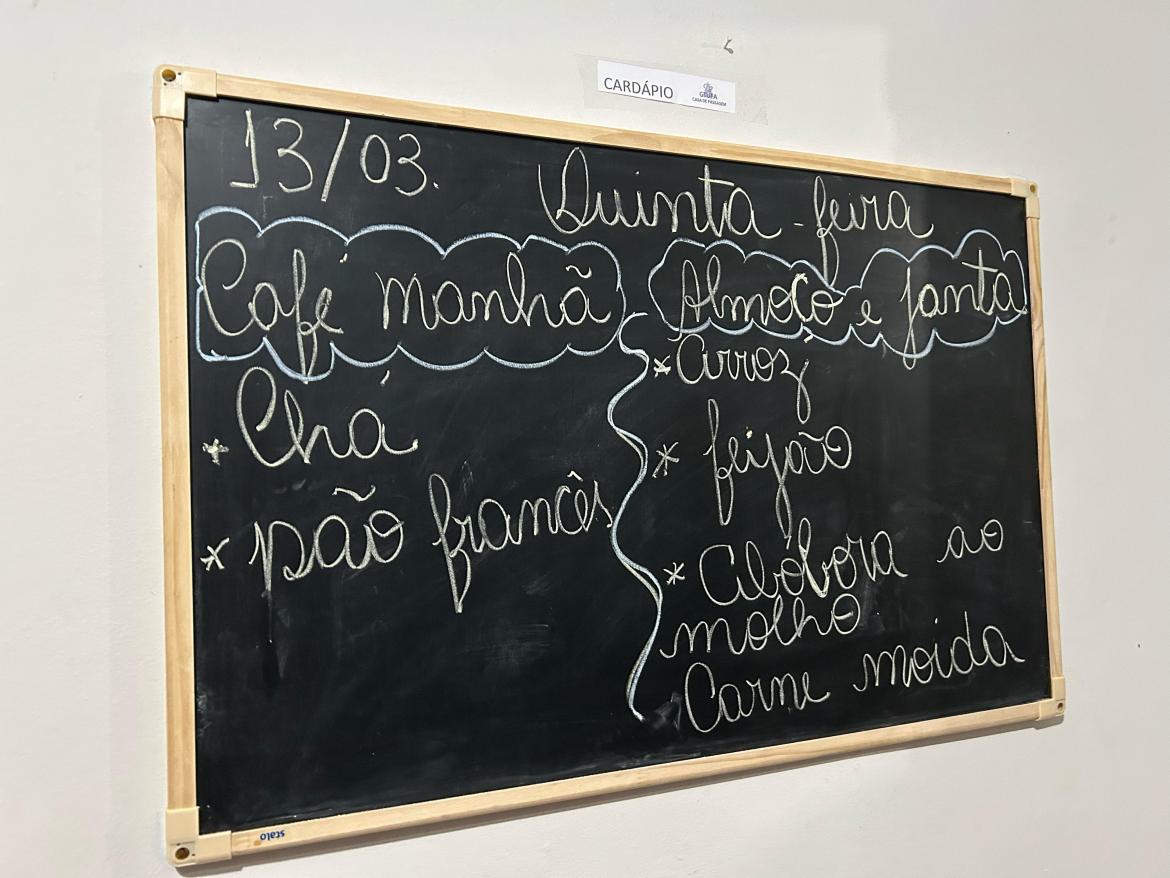 CARDÁPIO
CASA DE PASSAGEM
13/03.
Quinta-feira
Café manhã
* Chá
* pão francês
Almoço e janta
* Arroz
* feijão
* Abóbora ao
molho
Carne moida
stalo